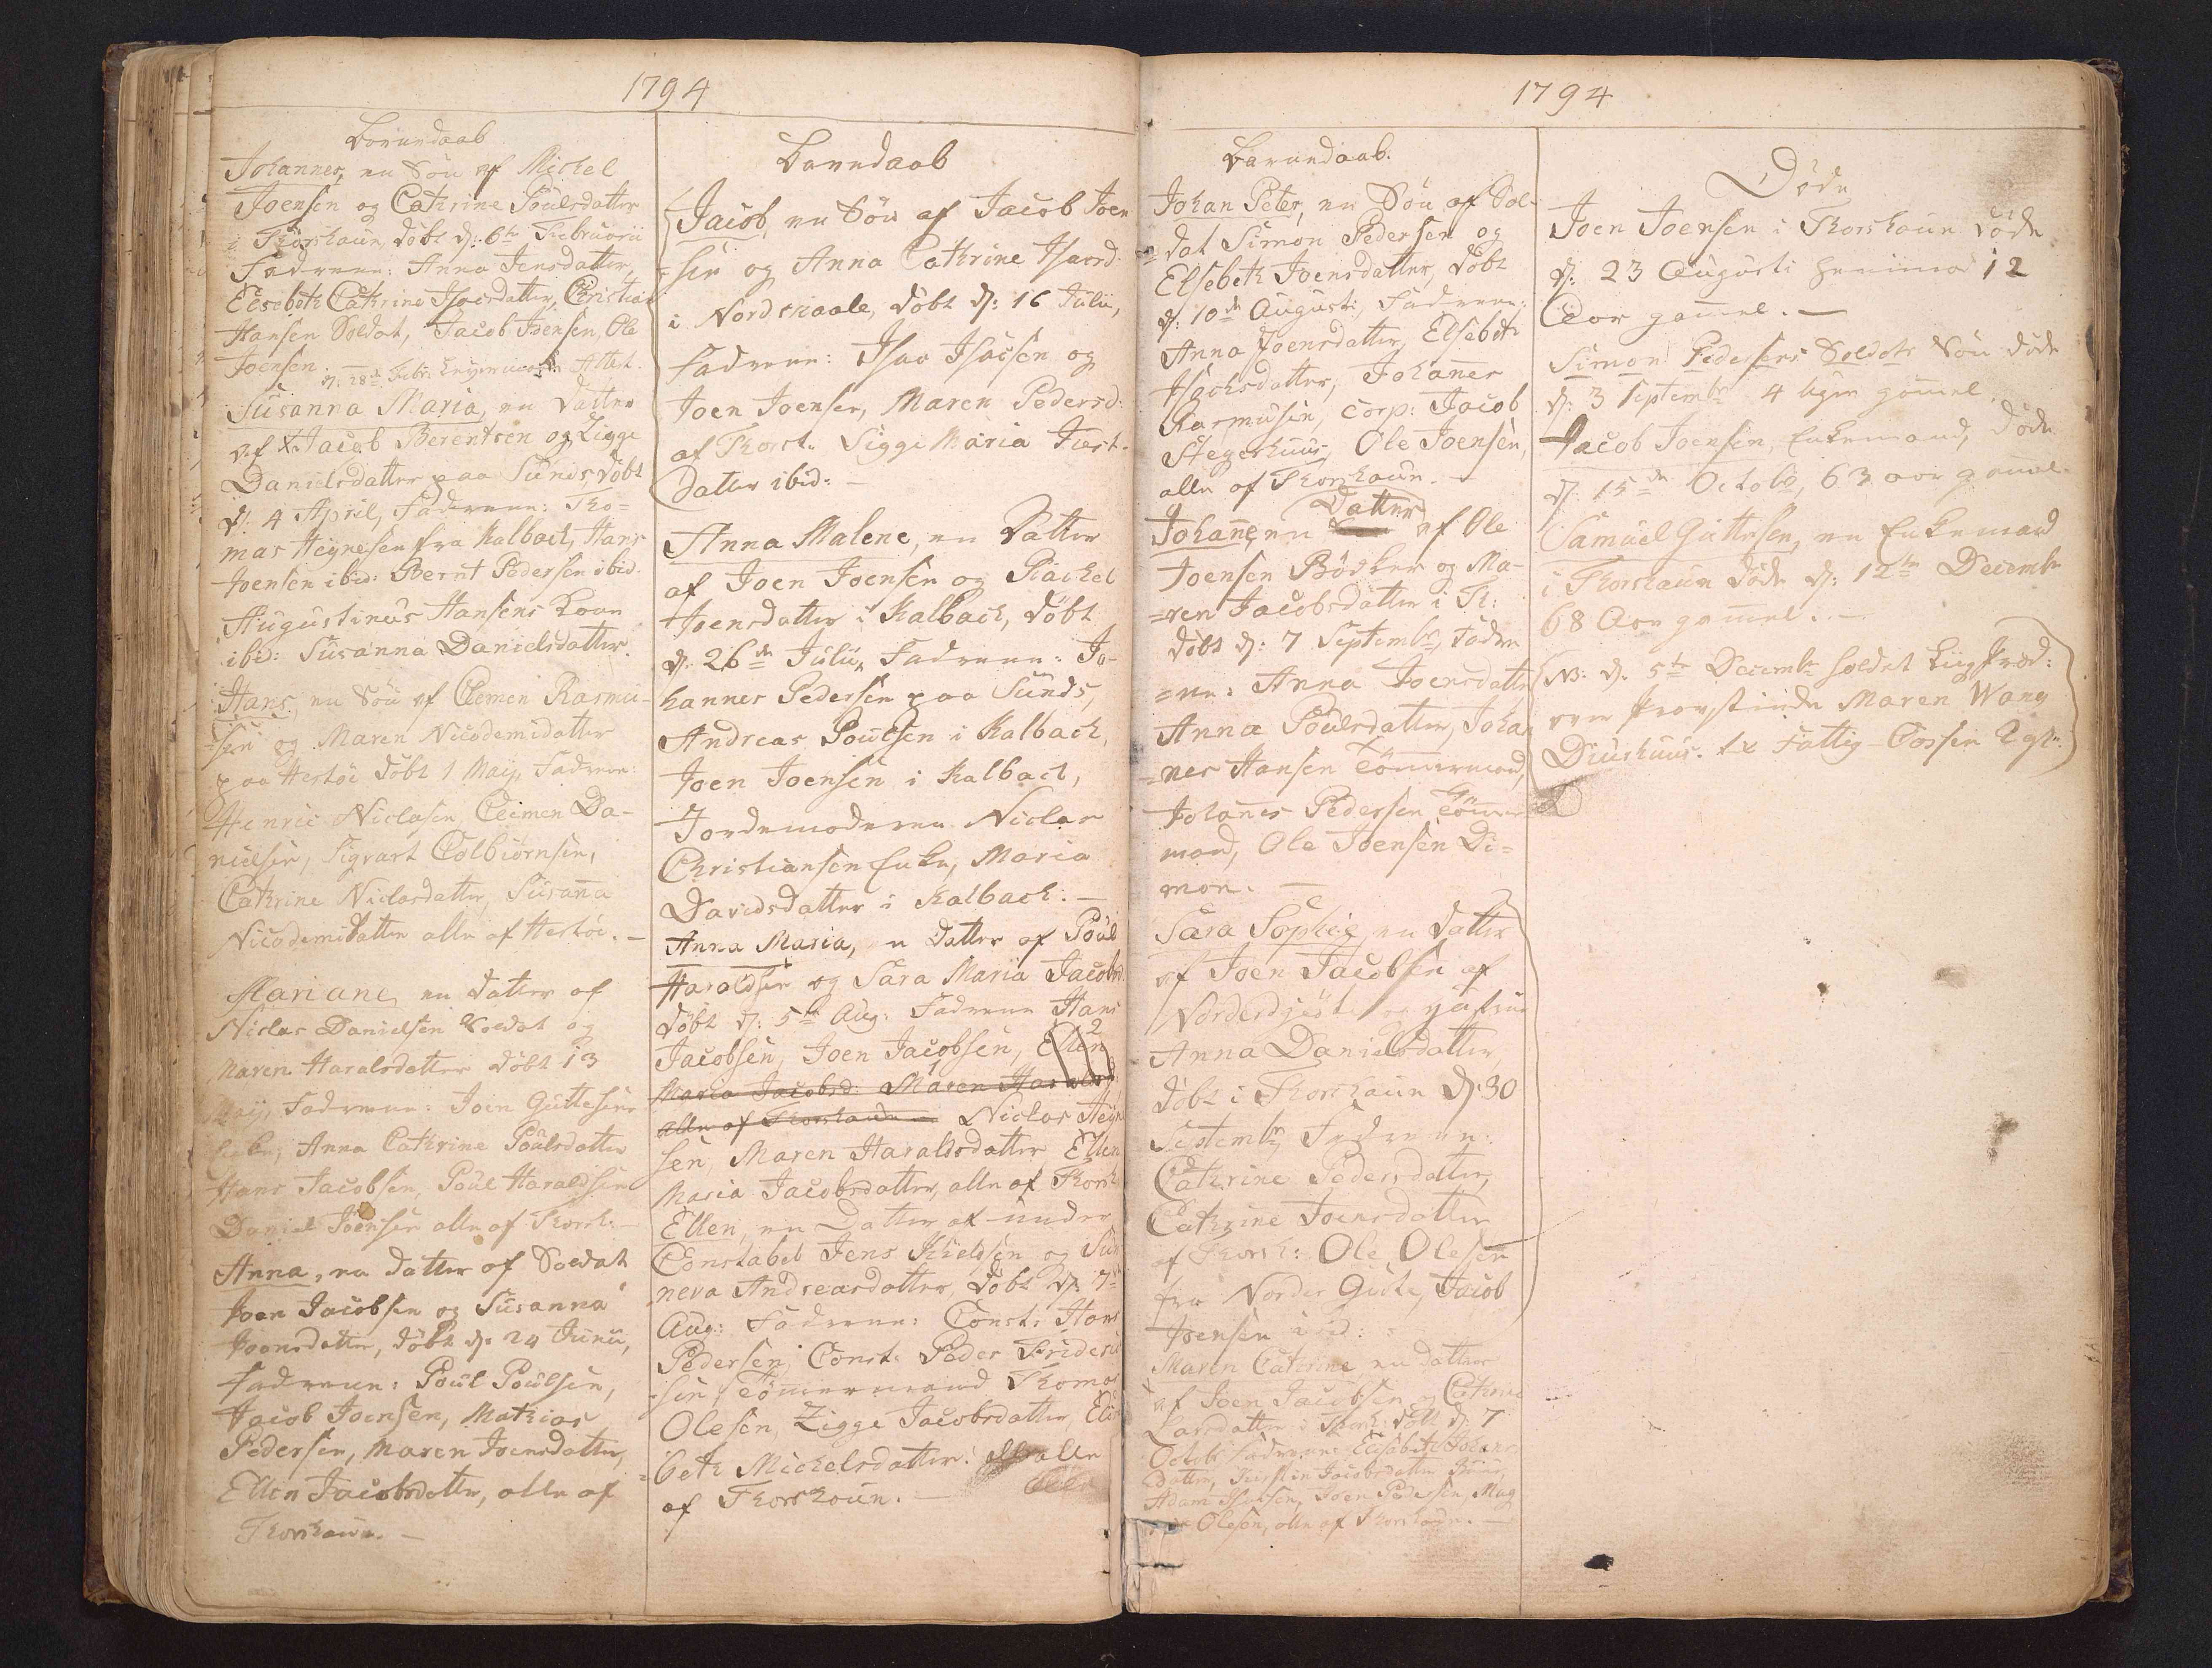 1794
Barnedaab
Johannes, en Søn af Michel
Joensen og Cathrine Poulsdatter
i Thorshaun, døbt d: 6te Februarii
Fadrene: Anna Jensdatter,
Elsebeth Cathrine Isacsdatter, Christian
Hansen Soldat, Jacob Joensen, Ole
Joensen.
d: 28de Febr. Attest.
Susanna Maria, en Datter
af Jacob Berentsen og Zigge
Danielsdatter paa Sunds, døbt
d: 4 April, Fadrene: Tho=
mas Heynesen fra Kalbach, Hans
Joensen ibid: Bernt Pedersen ibid.
Augustinus Hansens Kone
ibid: Susanna Danielsdatter.
Hans, en Søn af Clemen Rasmu-
sen og Maren Nicodemidatter
paa Hestøe døbt 1 Maij, Fadrene:
Henric Niclasen, Clemen Da-
nielsen, Sigvart Colbiørnsen,
Cathrine Niclasdatter, Susaña
Nicodemidatter alle af Hestøe. —
Mariane, en Datter af
Niclas Danielsen Soldat og
Maren Haralsdatter døbt 13
Maij, Fadrene: Joen Guttesens
Anna Cathrine Poulsdatter
Hans Jacobsen, Poul Haraldsen
Daniel Joensen alle af Thorsh: —
Anna, en Datter af Soldat
Joen Jacobsen og Susanna
Joensdatter, døbt d: 24 Junii,
Fadrene: Poul Poulsen,
Jacob Joensen, Mathias
Pedersen, Maren Joensdatter,
Ellen Jacobsdatter, alle af
Thorshaun. —
Barnedaab
Jacob, en Søn af Jacob Joen
sen og Anna Cathrine Isacsd:
i Nordskaale, døbt d: 16 Julii,
Fadrene: Isac Isacsen og
Joen Joensen, Maren Pedersd:
af Thorsh. Sigge Maria
Datter ibid: —
Anna Malene, en Datter
af Joen Joensen og Rachel
Joensdatter i Kalbach, døbt
d: 26de Julii, Fadrene: Jo-
hannes Pedersen paa Sunds,
Andreas Poulsen i Kalbach,
Joen Joensen i Kalbach,
Jordemoderen Niclas
Christiansens Enke, Maria
Davidsdatter i Kalbach. —
Anna Maria, en Datter af Poul
Haraldsen og Sara Maria Jacobsd
døbt d: 5te Aug: Fadrene Hans
Jacobsen, Joen Jacobsen, Ellen
Maria Jacobsd: Maren Haralsd
alle af Thorshaun — Niclas Heyne
sen, Maren Haraldsdatter Ellen
Maria Jacobsdatter, alle af Thorsh
Ellen, en Datter af under
Constabel Jens Kieldsen og Sun
neva Andreasdatter, døbt d: 7de
Aug: Fadrene: Const: Hans
Pedersen, Const: Peder Frideric
sen, Tømmermand Thomas
Olesen, Zigge Jacobsdatter, Elis
beth Michelsdatter: alle
af Thorshaun. —
1794
Barnedaab.
Johan Peter, en Søn af Sol-
=dat Simon Pedersen og
Elsebeth Joensdatter, døbt
d: 10de Augusti, Fadrene:
Anna Joensdatter, Elsebeth
Isachsdatter, Johañes
Rasmusen, Corp: Jacob
Stegerhuus, Ole Joensen,
alle af Thorshaun. —
Datter
Johañe, en af Ole
Joensen Bødker og Ma-
=ren Jacobsdatter i Th:
døbt d: 7 Septembr, Fadre
=ne: Anna Joensdatter
Anna Poulsdatter, Johan
=nes Hansen Tømmermand,
Johanes Pedersen Tømmer
mand, Ole Joensen Di=
mon. —
Sara Sophie, en Datter
af Joen Jacobsen af
Norderdjeet og Hustrue
Anna Danielsdatter
døbt i Thorshaun d: 30
Septembr Fadrene:
Cathrine Pedersdatter,
Cathrine Joensdatter
af Thorsh: Ole Olesen
fra Norder Giøte, Jacob
Joensen ibid:
Maren Cathrine en Datter
af Joen Jacobsen og Cathrine
Larsdatter i Thorsh: døbt d: 7
Octobr Fadrene Elisabeth Johans
datter, Jacobsdatter
Adam Isacsen, Joen Pedersen, Mag
Olesen, alle af Thorshaun. —
Døde
Joen Joensen i Thorshaun døde
d: 23 Augusti henimod 12
Aar gammel. —
Simon Pedersens Soldats Søn døde
d: 3 Septembr 4 Uger gammel.
Jacob Joensen, Enkemand, døde
d: 15de Octobr, 63 aar gamel.
Samuel Guttesen, en Enkemand
i Thorshaun døde d: 12te Decembr
68 Aar gammel. —
NB: d: 5te Decembr holdet Liigpræd:
over Provstinde Maren Wang
Diurhuus. til Fattig-Cassen 2 gl.